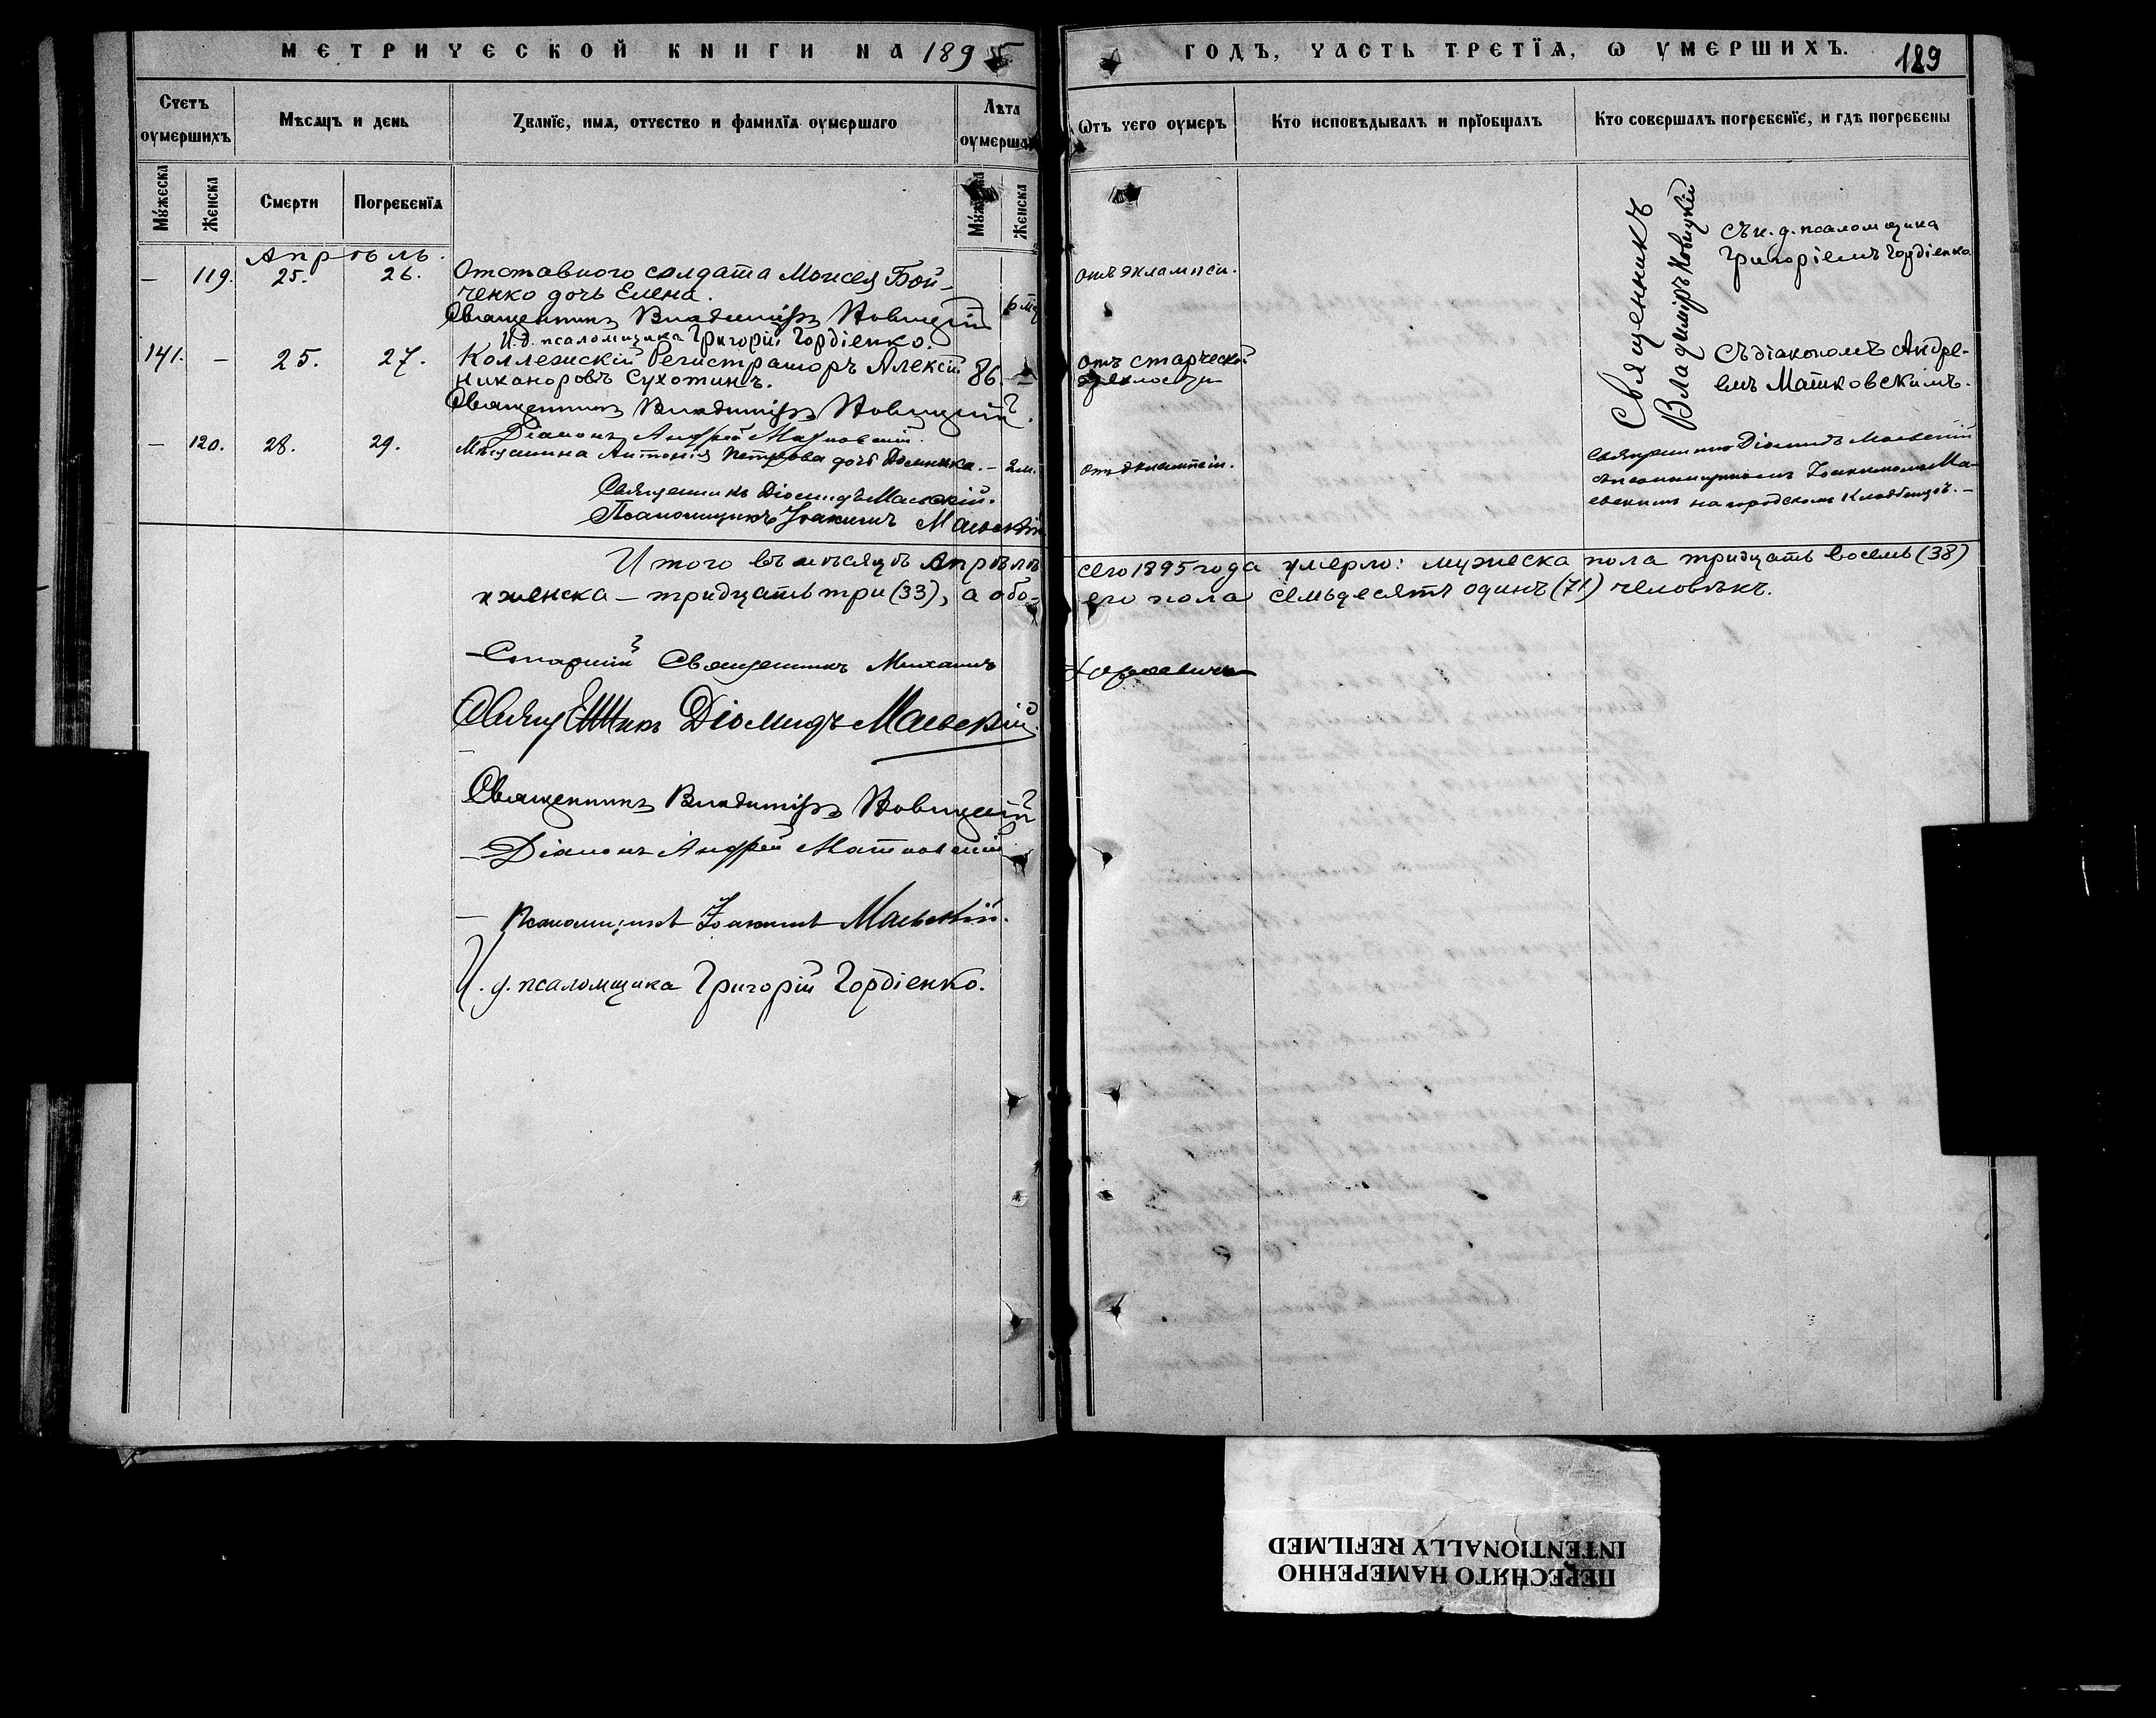 МЕТРИЧЕСКОЙ КНИГИ НА 1895
ГОДЪ, ЧАСТЬ ТРЕТЇѦ, Ѡ УМЕРШИХЪ.
189
Счетъ оумершихъ
Мѣсяцъ и день
Званїе, имя, отчество и фамилїя оумершаго
Лѣта оумерша
Ѿтъ чего оумеръ
Кто исповѣдывалъ и прїобщалъ
Кто совершалъ погребенїе, и гдѣ погребены
Мужеска
Женска
Смерти
Погребенїя
Мужеска
Женска
Апрѣль.
— 119. 25. 26. Отставного солдата Моисея Бой-
ченко дочь Елена.
6 мѣ
отъ эклампсіи.
Священникъ Владиміръ Новицкій
Съ и. д. псаломщика
Григоріемъ Гордіенко
Священникъ Владиміръ Новицкій
И. д. псаломщика Григорій Гордіенко.
141. — 25. 27. Коллежскій Регистраторъ Алексій
Никаноровъ Сухотинъ.
86. —
отъ старческой
дряхлости
Съ діакономъ Андре-
емъ Матковскимъ.
Священникъ Владиміръ Новицкій.
Діаконъ Андрей Матковскій.
— 120. 28. 29. Мѣщанина Антонія Петрова дочь Домника. — 2 м.
отъ эклампсіи.
Священникъ Діомидъ Маевскій
съ псаломщикомъ Іоакимомъ Ма-
евскимъ на городскомъ кладбищѣ. —
Священникъ Діомидъ Маевскій.
Псаломщикъ Іоакимъ Маевскій
Итого въ мѣсяцѣ Апрѣлѣ сего 1895 года умерло: мужеска пола тридцать восемь (38)
и женска — тридцать три (33), а обо- его пола семьдесятъ одинъ (71) человѣкъ.
— Старшій Священникъ Михаилъ
Священникъ Діомидъ Маевскій.
Священникъ Владиміръ Новицкій
— Діаконъ Андрей Матковскій
— Псаломщикъ Іоакимъ Маевскій.
И. д. псаломщика Григорій Гордіенко.
ПЕРЕСНЯТО НАМЕРЕННО
INTENTIONALLY REFILMED